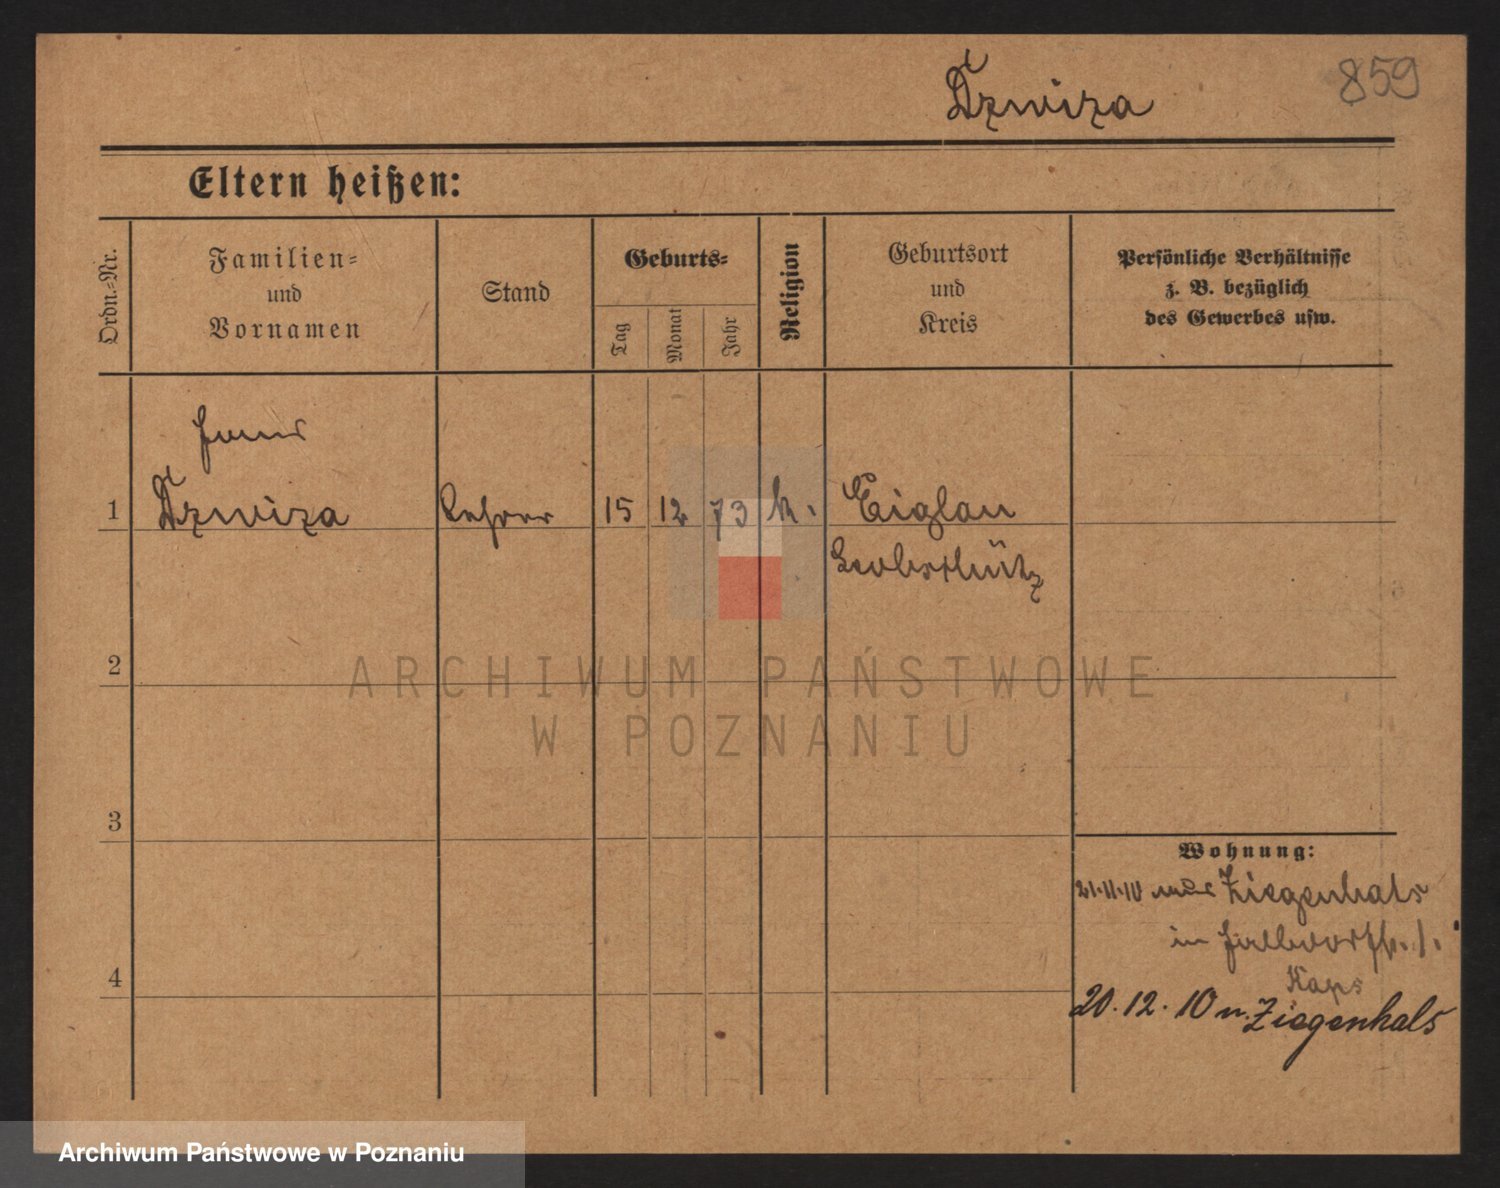 Dzwiza
859
Eltern heißen:
Ordn.-Nr.
Familien-
und
Vornamen
Stand
Geburts-
Tag
Monat
Jahr
Religion
Geburtsort
und
Kreis
Persönliche Verhältnisse
z. B. bezüglich
des Gewerbes usw.
1
Dzwiza
Lehrer
15
12
73
k.
Eiglau
Leobschütz
2
3
4
Wohnung:
21.11.10 nach Ziegenhals
in
20.12.10 n. Ziegenhals
ARCHIWUM PAŃSTWOWE
W POZNANIU
Archiwum Państwowe w Poznaniu